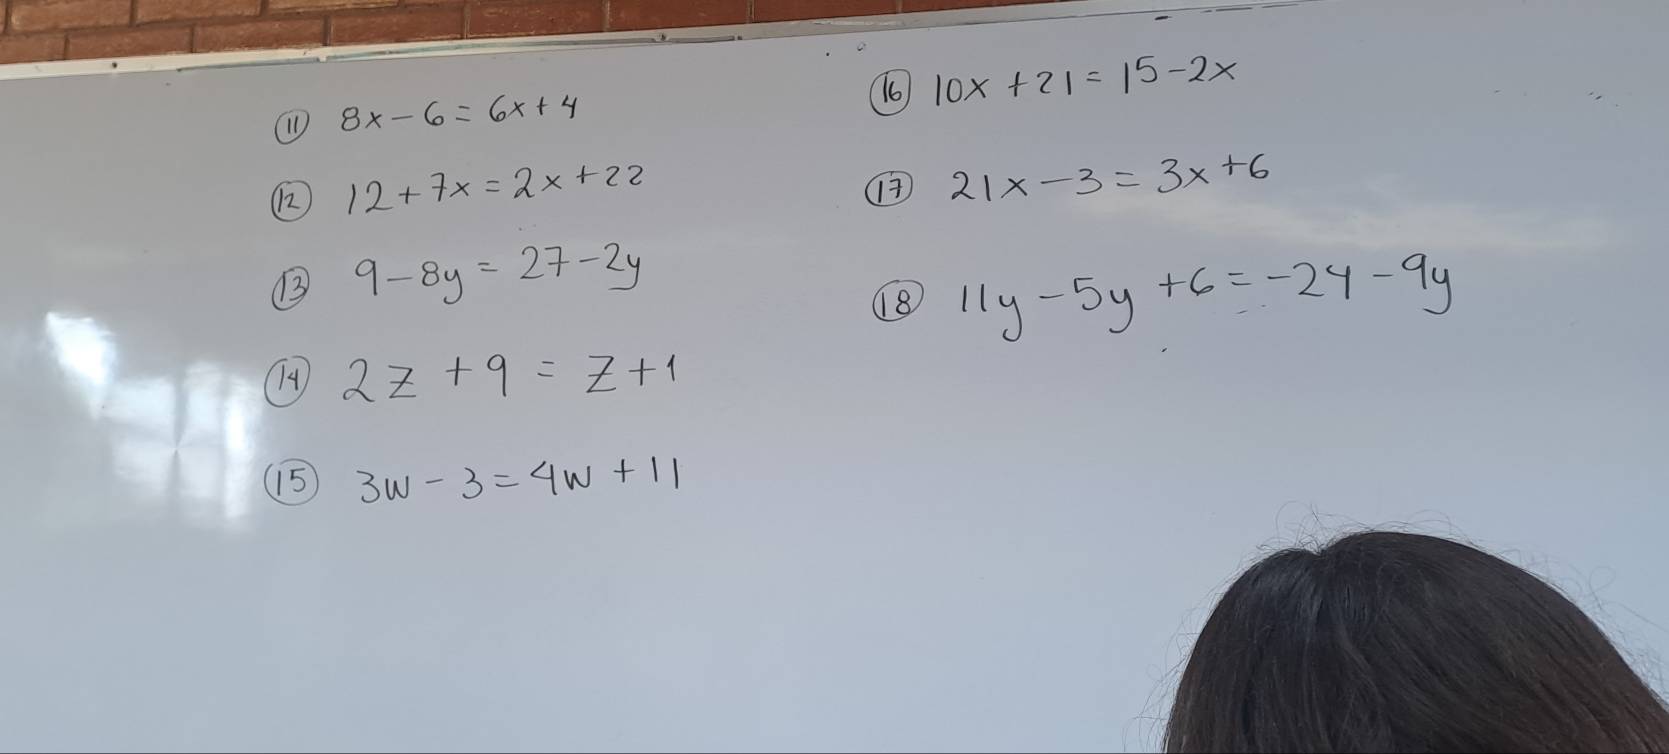 ⑪ 8x-6=6x+4
⑫ 12+7x=2x+22
⑬ 9-8y=27-2y
⑭ 2z+9=z+1
⑮ 3w-3=4w+11
⑯ 10x+21=15-2x
⑰ 21x-3=3x+6
⑱ 11y-5y+6=-24-9y